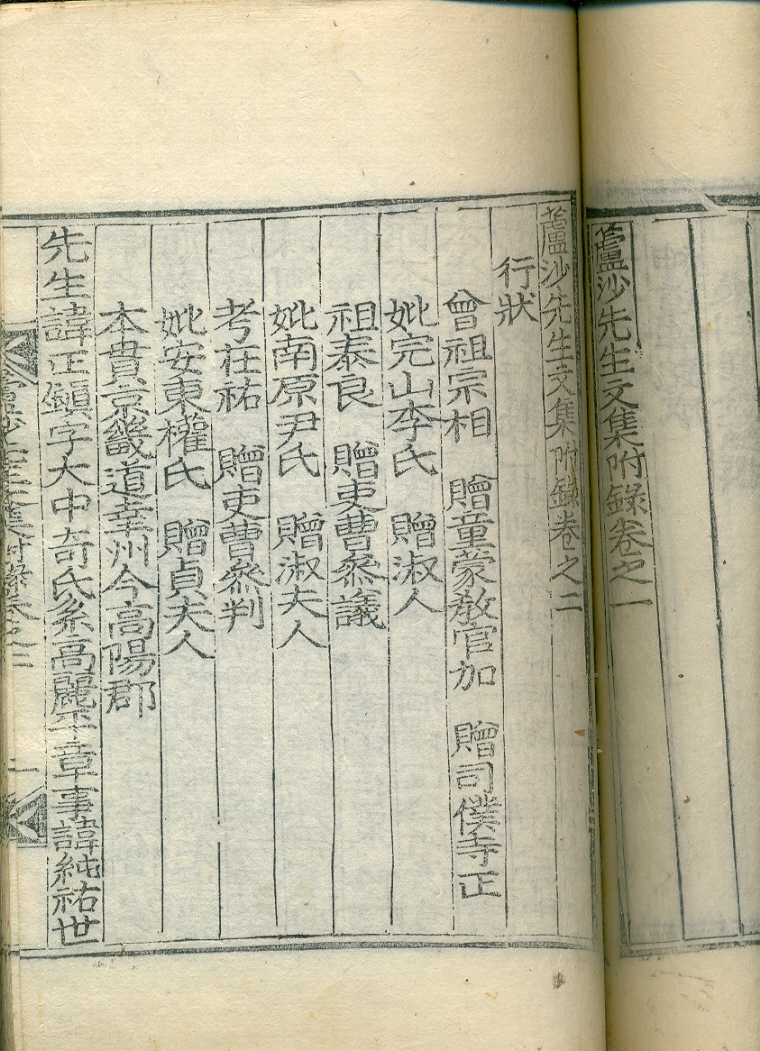 蘆沙先生文集附錄卷之一
蘆沙先生文集附錄卷之二
行狀
曾祖宗相 贈童蒙敎官加 贈司僕寺正
妣完山李氏 贈淑人
祖泰良 贈吏曹參議
妣南原尹氏 贈淑夫人
考在祐 贈吏曹參判
妣安東權氏 贈貞夫人
本貫京畿道幸州今高陽郡
先生諱正鎭字大中奇氏系高麗平章事諱純祐世
蘆沙先生文集附錄卷之二 一